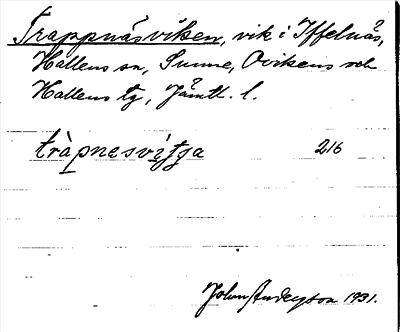 Trappnäsviken, vik i Iffelnäs,
Hallens sn, Sunne, Ovikens och
Hallens tg, Jämtl. l.
tràpnesvitja 216
Johan Anderzon 1931.